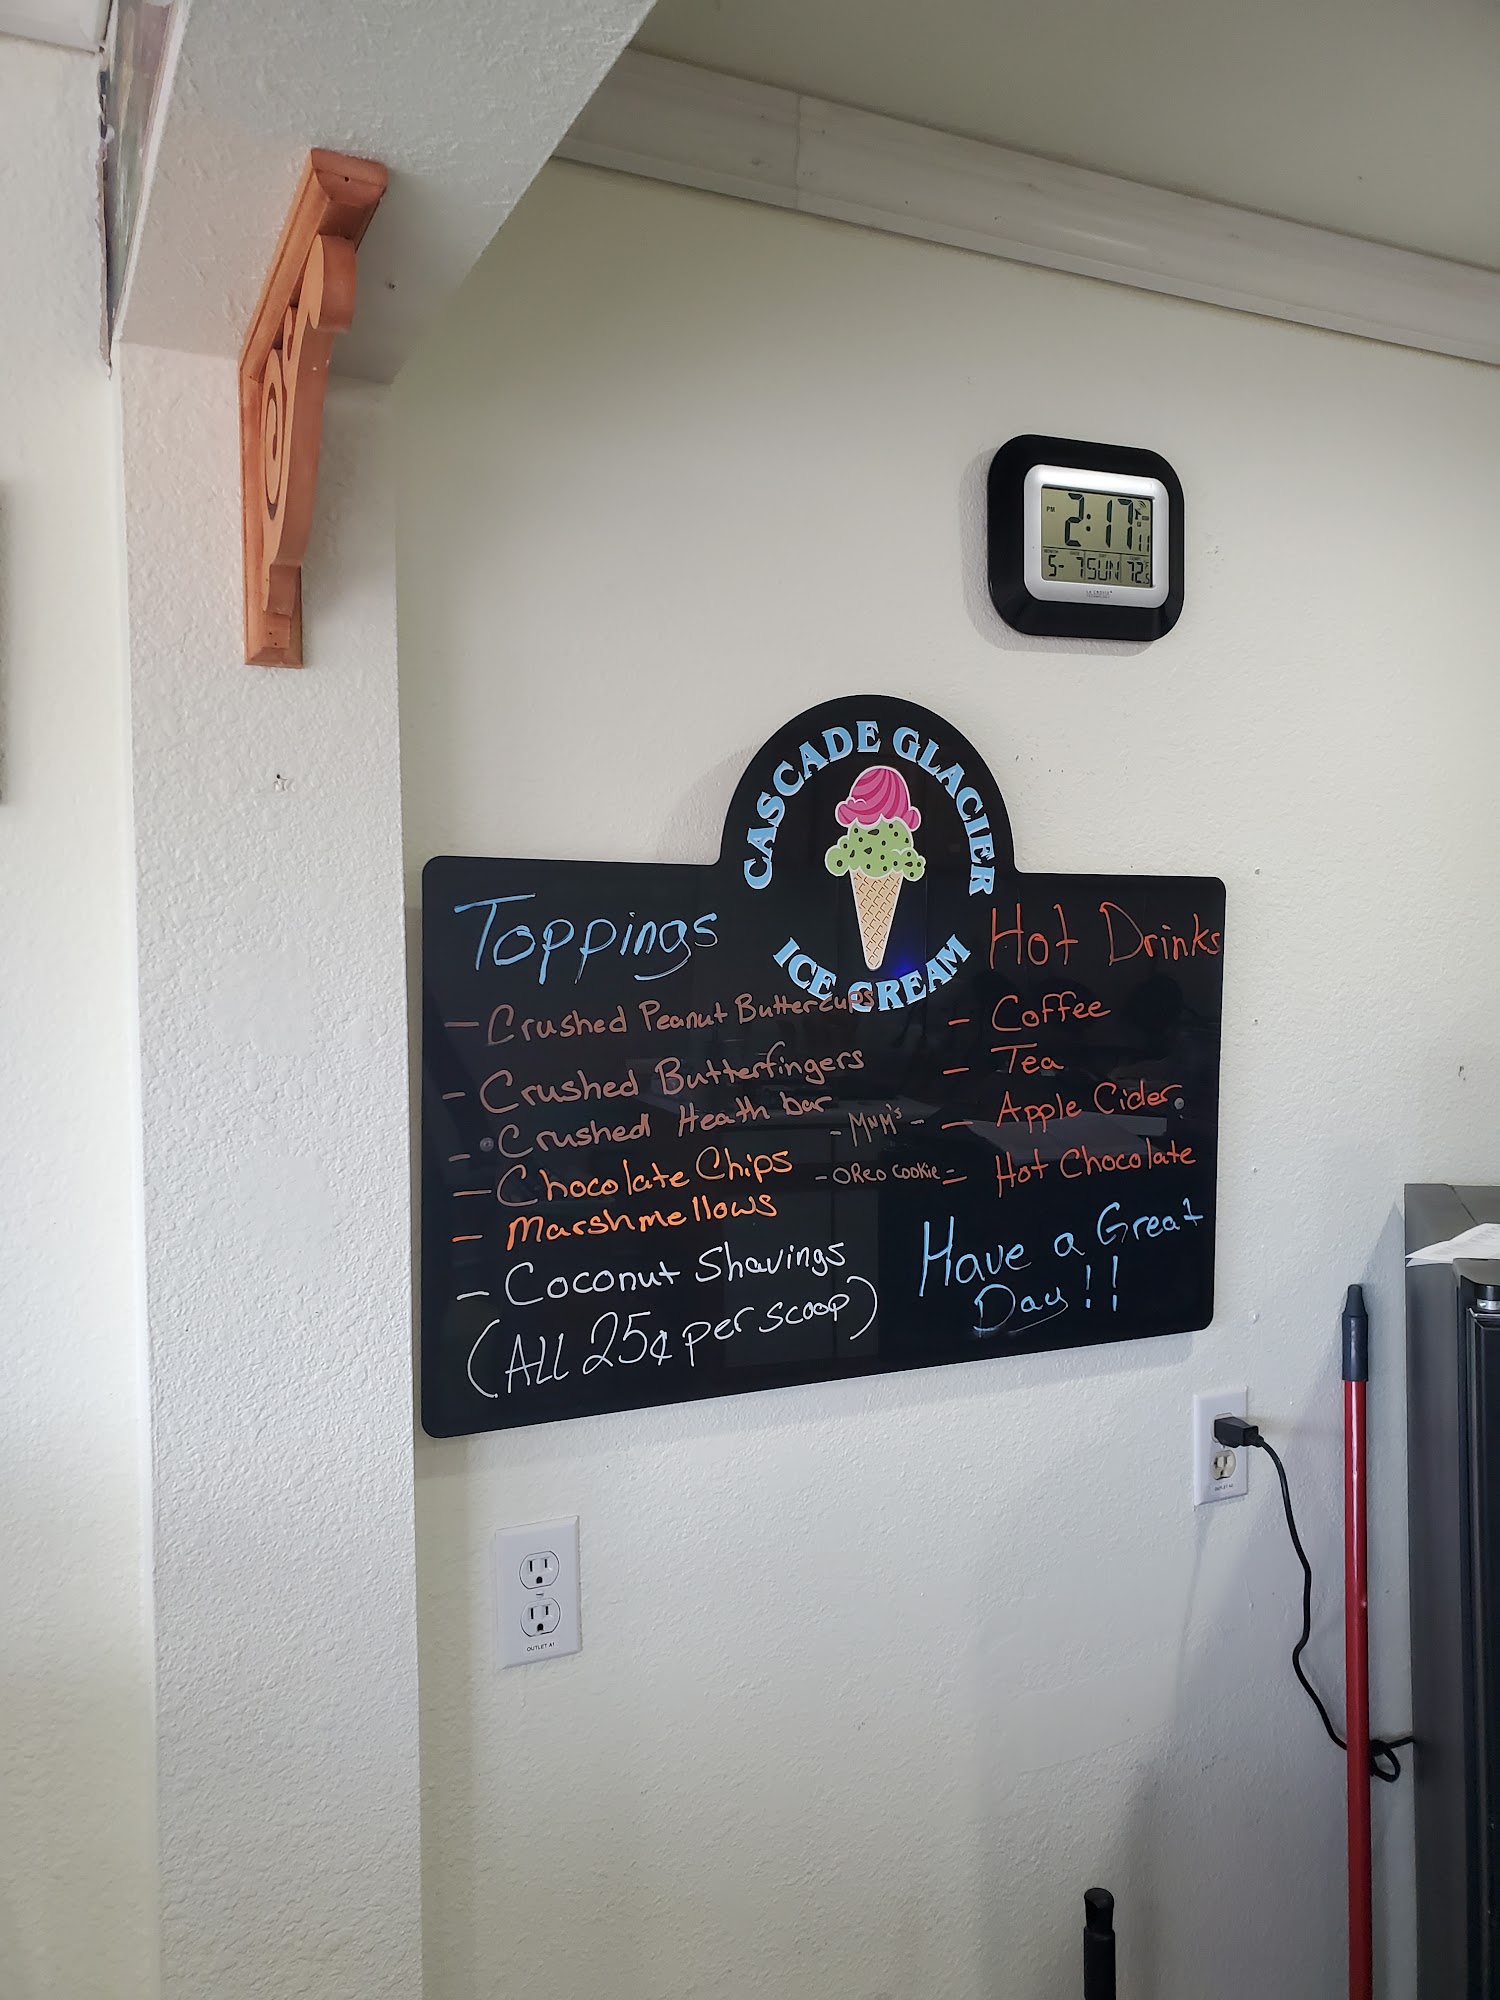 PM 2:17 11
MONTH DATE DAY TEMP
5- 7 SUN 72.5
LA CROSSE
TECHNOLOGY
CASCADE GLACIER
ICE CREAM
Toppings
- Crushed Peanut Buttercups
- Crushed Butterfingers
- Crushed Heath bar
- Chocolate Chips
- Marshmellows
- Coconut Shavings
(ALL 25¢ per scoop)
- MnM's -
- OReo Cookie
Hot Drinks
- Coffee
- Tea
- Apple Cider
- Hot Chocolate
Have a Great
Day!!
OUTLET A1
OUTLET A1